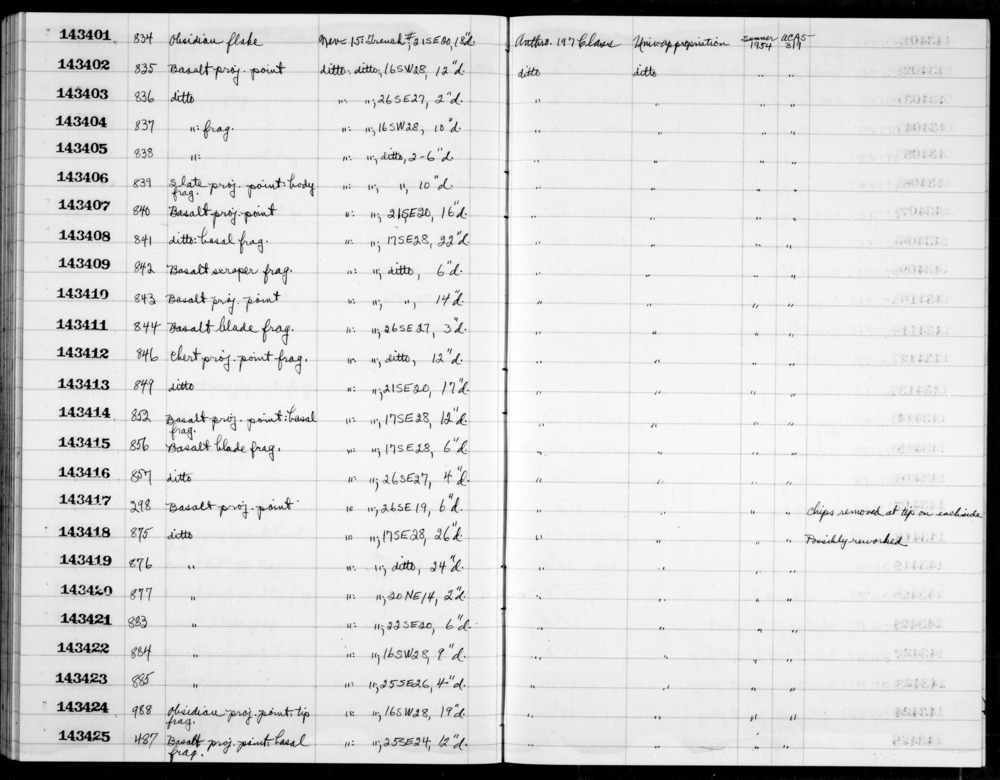 143401 834 Obsidian flake Nev-15: Trench #, 21SE20, 18"d. Anthro. 197 Classes Univ appropriation Summer 1954 UCAS-319
143402 835 Basalt proj. point ditto: ditto, 16SW28, 12"d. ditto ditto " "
143403 836 ditto ": "; 26SE27, 2"d. " " " "
143404 837 ": frag. ": "; 16SW28, 10"d. " " " "
143405 838 ": ": "; ditto, 2-6"d. " " " "
143406 839 Slate proj. point: body frag. ": "; ", 10"d. " " " "
143407 840 Basalt proj. point ": "; 21SE20, 16"d. " " " "
143408 841 ditto: basal frag. ": "; 17SE28, 22"d. " " " "
143409 842 Basalt scraper frag. ": "; ditto, 6"d. " " " "
143410 843 Basalt proj. point ": "; ", 14"d. " " " "
143411 844 Basalt blade frag. ": "; 26SE27, 3"d. " " " "
143412 846 Chert proj. point frag. ": "; ditto, 12"d. " " " "
143413 849 ditto ": "; 21SE20, 17"d. " " " "
143414 852 Basalt proj. point: basal frag. ": "; 17SE28, 12"d. " " " "
143415 856 Basalt blade frag. ": "; 17SE28, 6"d. " " " "
143416 857 ditto ": "; 26SE27, 4"d. " " " "
143417 298 Basalt proj. point ": "; 26SE19, 6"d. " " " " Chips removed at tip on each side
143418 875 ditto ": "; 17SE28, 26"d. " " " " Possibly reworked
143419 876 " ": "; ditto, 24"d. " " " "
143420 877 " ": "; 20NE14, 2"d. " " " "
143421 883 " ": "; 22SE20, 6"d. " " " "
143422 884 " ": "; 16SW28, 9"d. " " " "
143423 885 " ": "; 25SE26, 4"d. " " " "
143424 988 Obsidian proj. point: tip frag. ": "; 16SW28, 19"d. " " " "
143425 487 Basalt proj. point: basal frag. ": "; 25SE24, 12"d. " " " "